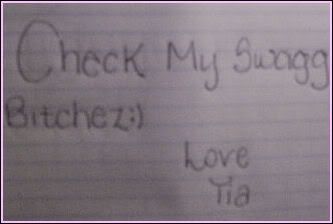 Check My Swagg
Bitchez:)
Love
Tia